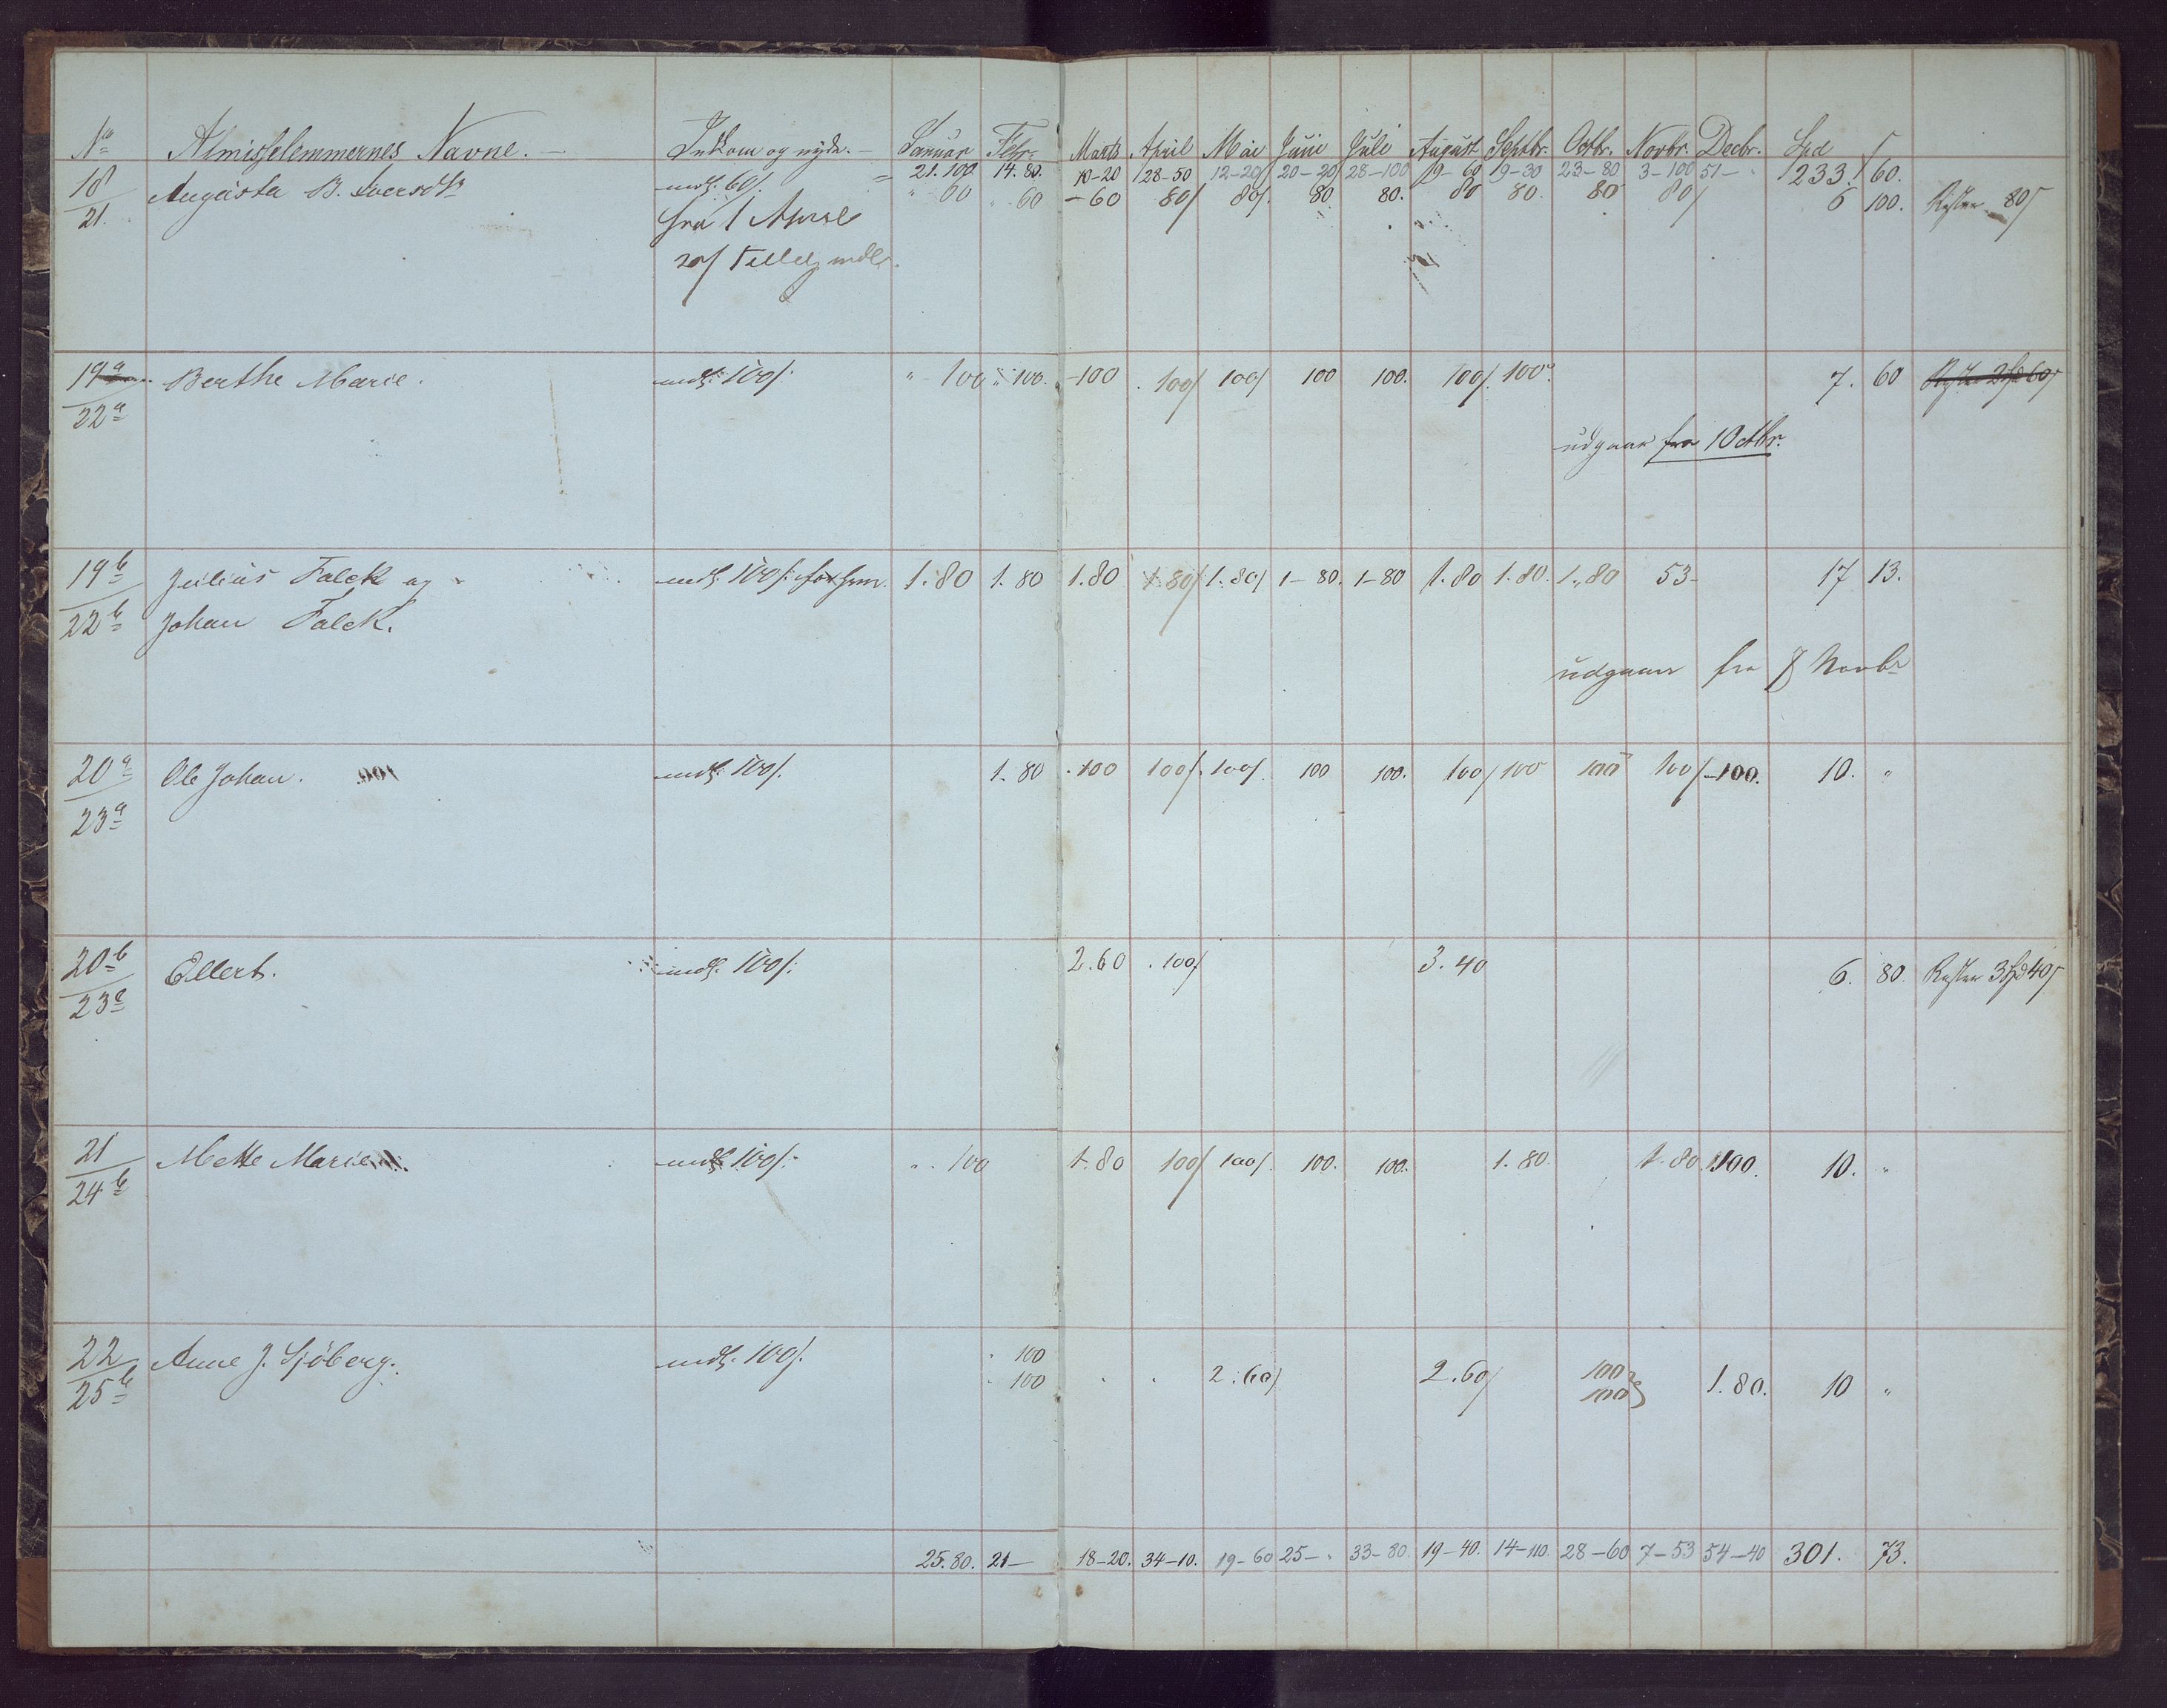 No Almisselemmernes Navne. Indkom og nyde. Januar Febr. Marts April Mai Juni Juli August Septbr. Octbr. Novbr. Decbr. Spd ſ
= 21.100 14.80. 10-20 28-50 12-20 20-20 28-100 19-60 19-30 23-80 3-100 51- 233. 60.
18 Augusta B. Iversdtr mdl. 60/. " 60 " 60 -60 80/ 80/. 80 80. 80 80. 80 80/ 6 100. Rester 80/
21. fra 1 April
20/ Tillæg mdl.
19a Berthe Marie. mdl. 100/. " 100 " 100. -100 . 100/ 100/ 100 100. 100/. 100. 7. 60
22a udgaar fra 1 Octbr.
19b Julius Falck og mdl. 100/. 1.80 1.80 1.80 1.80/ 1.80/ 1-80. 1-80 1.80 1.80. 1.80 53- 17 13.
22b Johan Falck.
udgaar fra 8 Novbr
20a Ole Johan. mdl. 100/. 1.80 .100 100/. 100/. 100 100. 100/ 100 100 100/ -100. 10. "
23a
20b Ellert. mdl. 100/. 2.60 .100/ 3.40 6. 80. Rester 3 Spd 40/
23a
21 Mette Marie mdl. 100/. " 100 1.80 100/ 100/. 100. 100. 1.80 1.80 100. 10. "
24b
22 Anne J. Sjöberg. mdl. 100/. . 100 . . 2.60/ 2.60/ 100 1.80. 10 "
25b . 100 100
25.80. 21- 18-20. 34-10. 19-60 25-. 33-80. 19-40. 14-110. 28-60 7-53 54-40 301. 73.